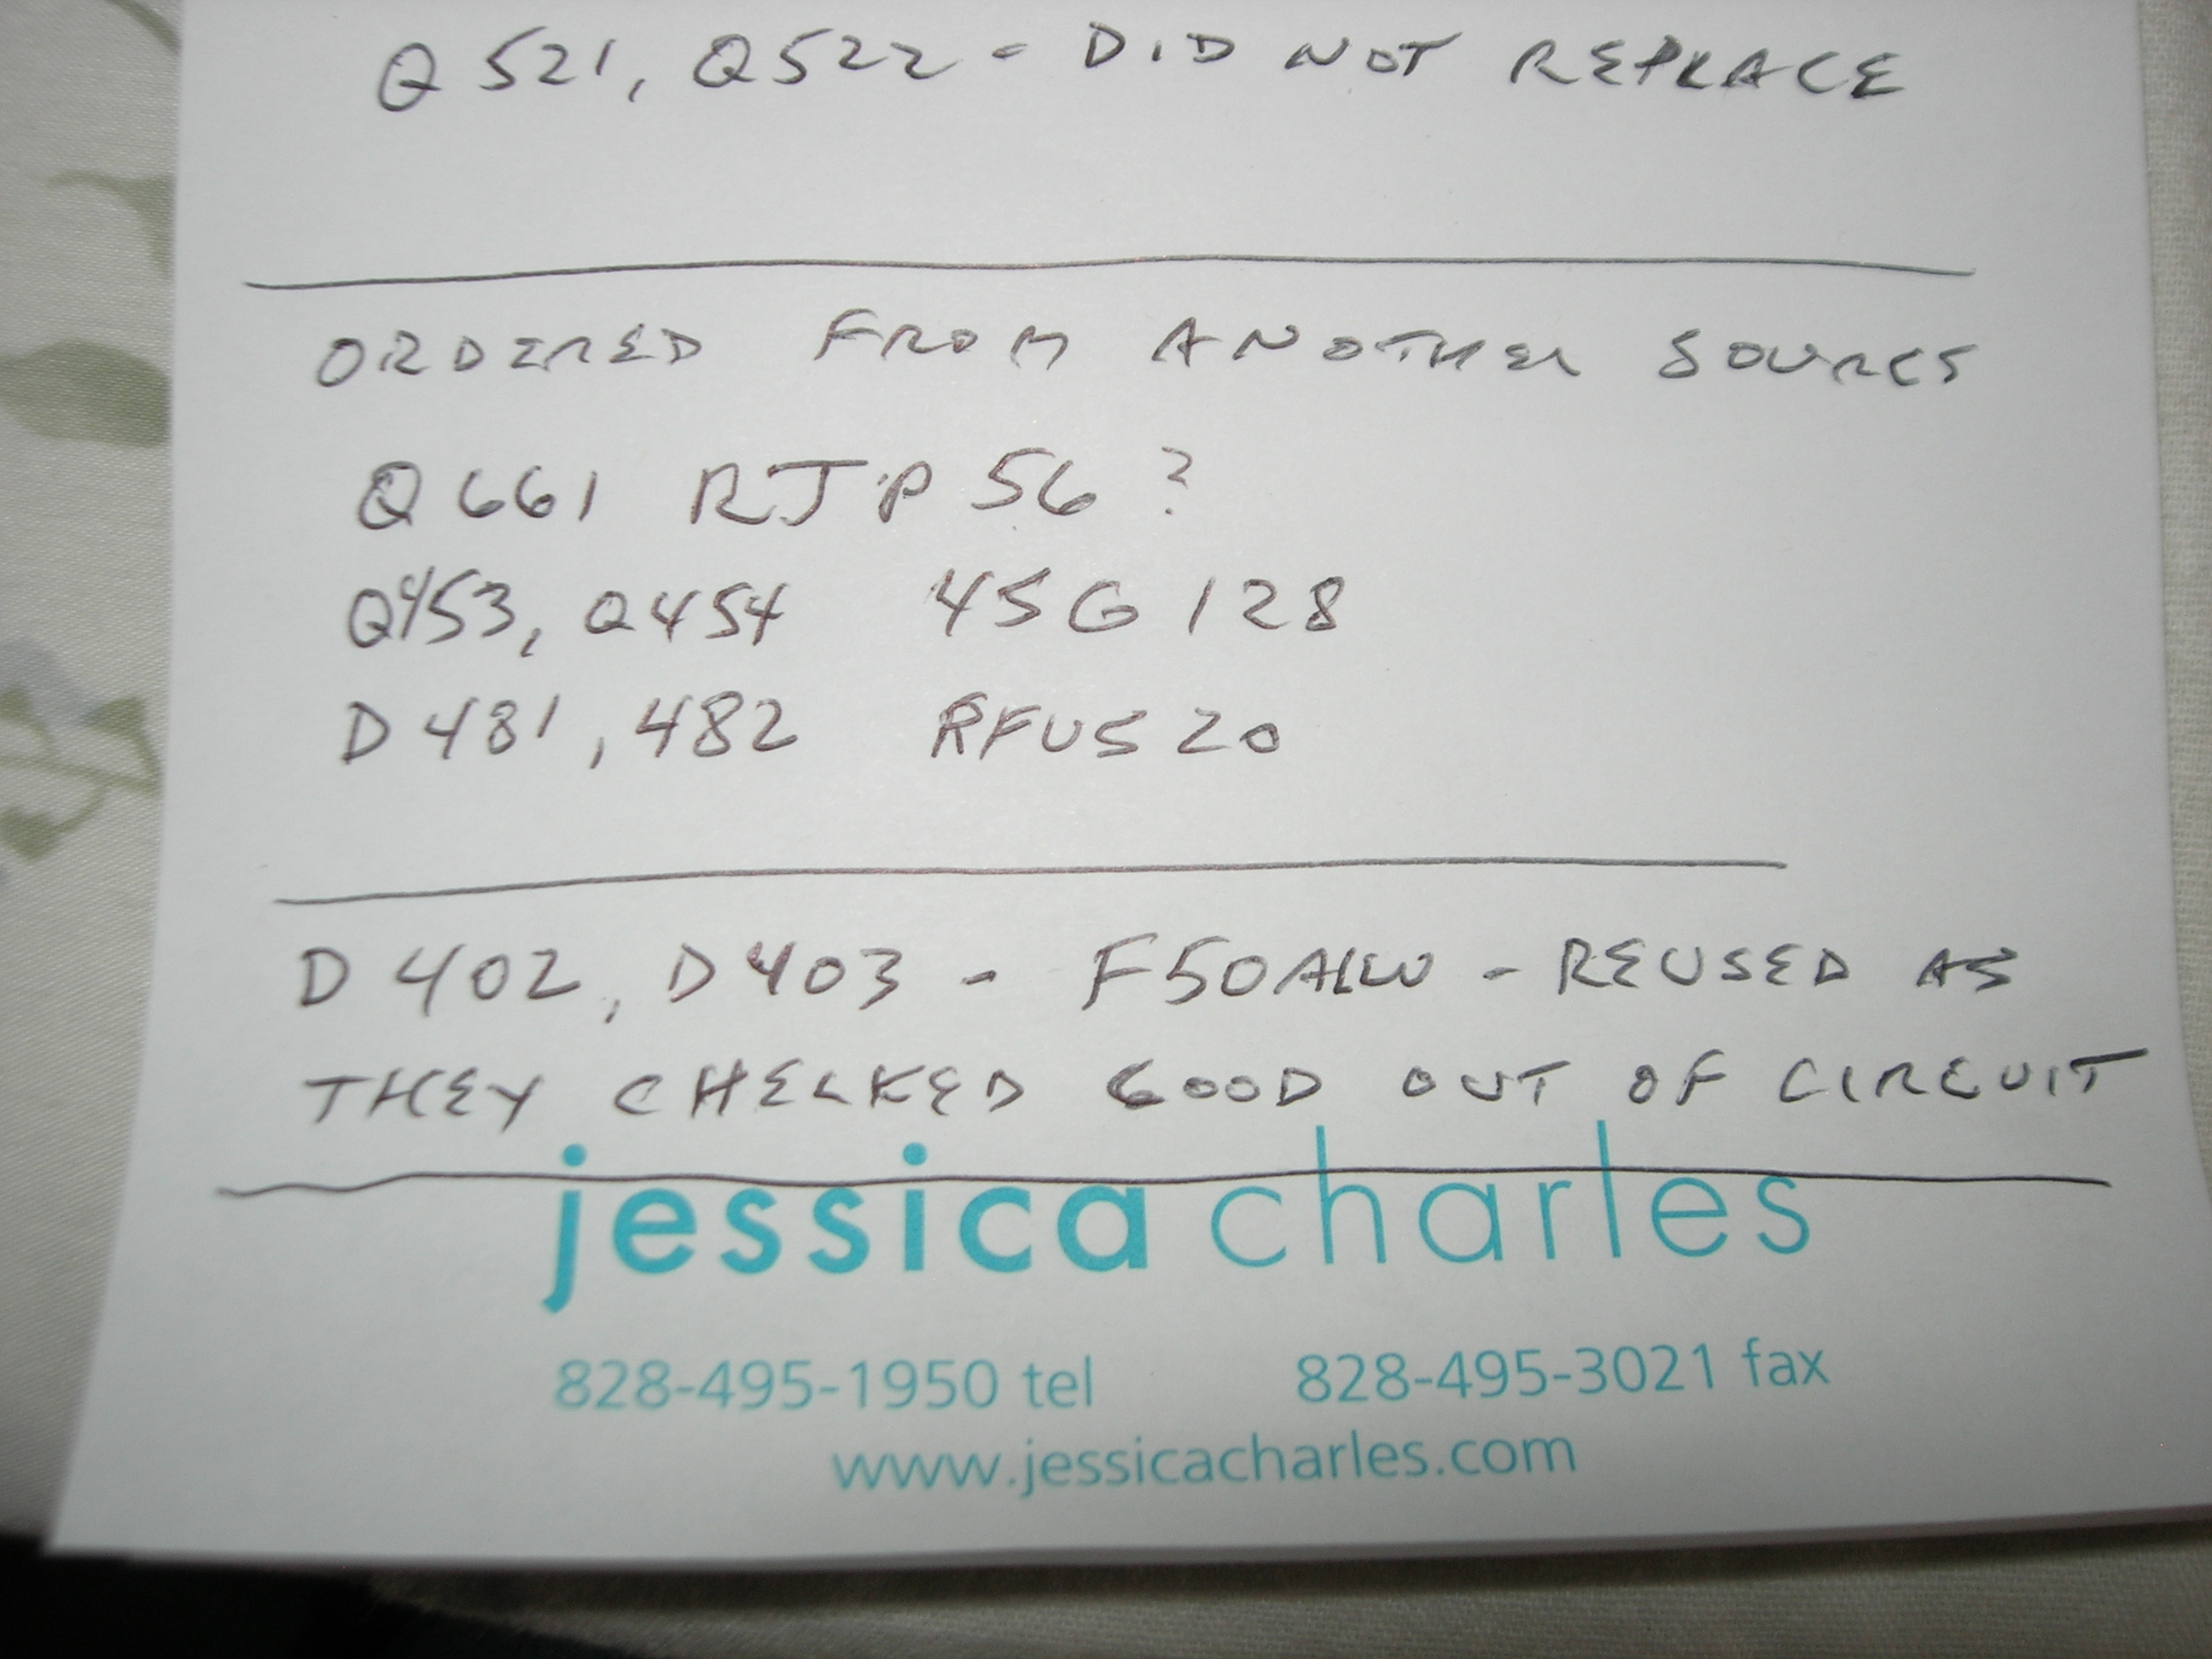 Q 521, Q522 - DID NOT REPLACE
ORDERED FROM ANOTHER SOURCE
Q 661 RJP 56 ?
Q453, Q454 45G 128
D 481, 482 RFUS 20
D 402, D403 - F50AKW - REUSED AS
THEY CHECKED GOOD OUT OF CIRCUIT
jessica charles
828-495-1950 tel 828-495-3021 fax
www.jessicacharles.com